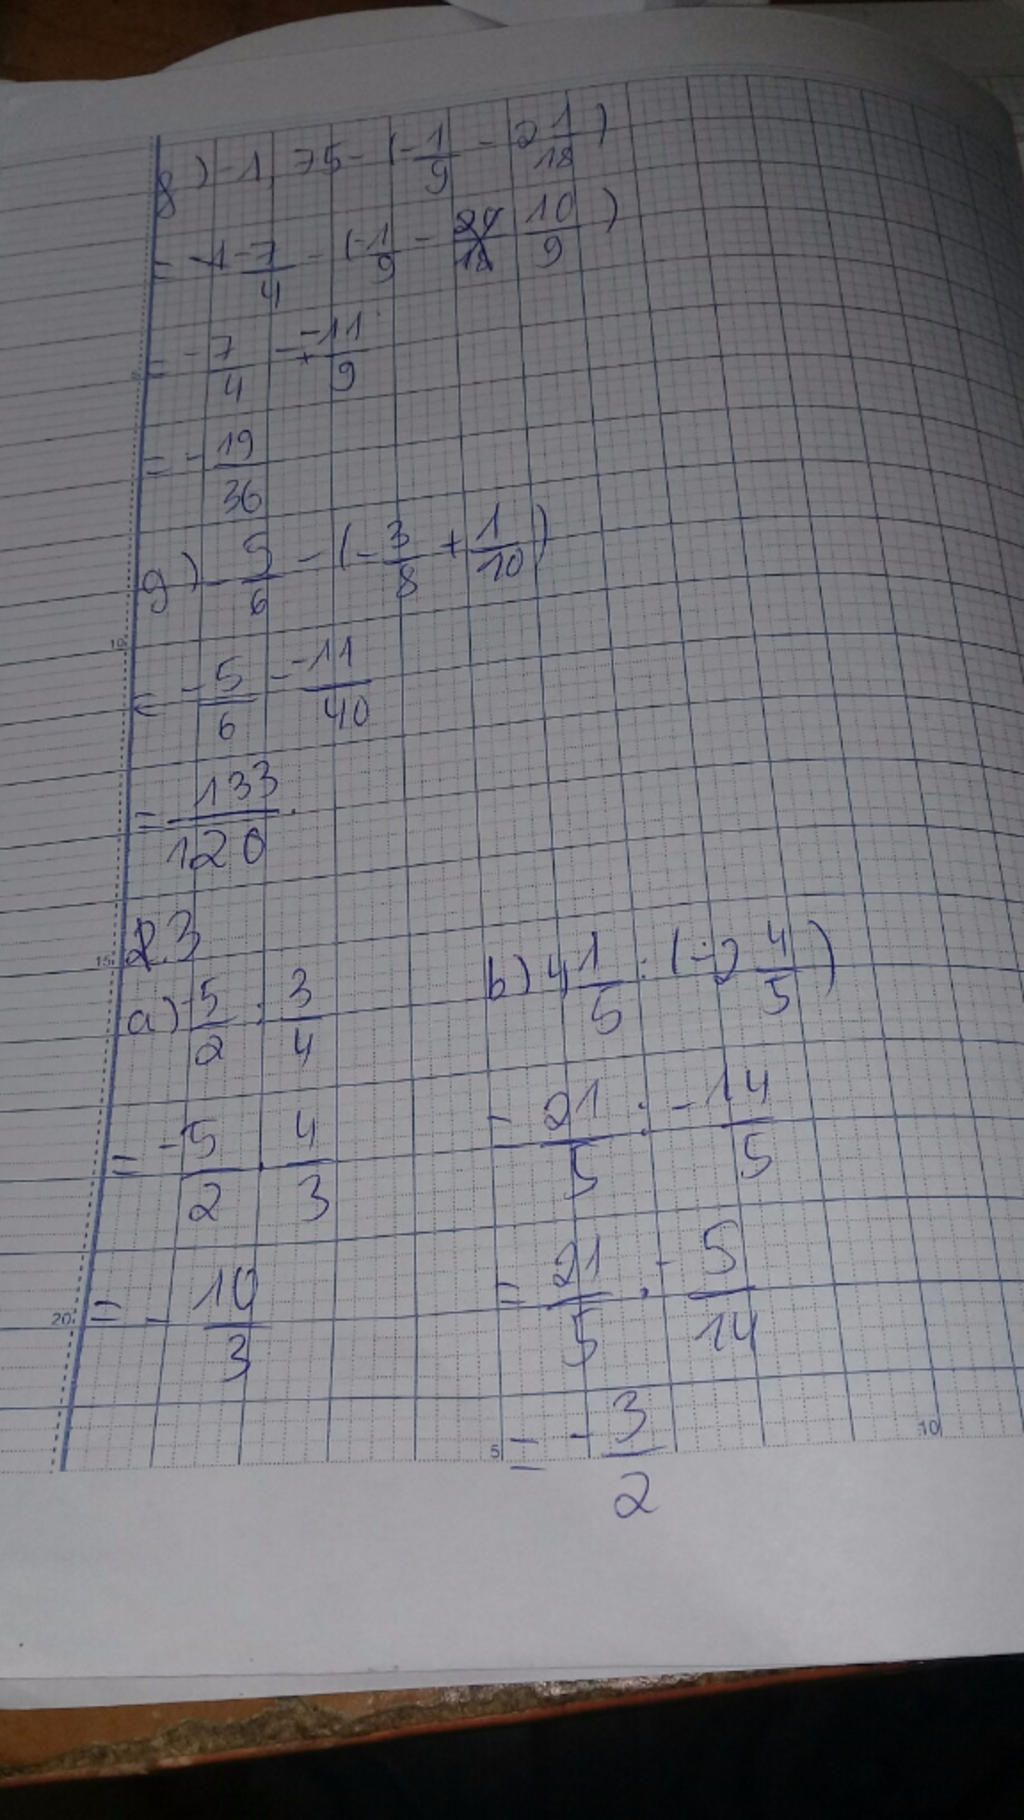 8) -1,75 - (-1/9 - 2 1/18)
= -7/4 - (-1/9 - 10/9)
= -7/4 - + -11/9
= -19/36
g) -5/6 - (-3/8 + 1/10)
= -5/6 - -11/40
= 133/120.
23
a) -5/2 : 3/4
= -5/2 . 4/3
= -10/3
b) 4 1/5 : (-2 4/5)
= 21/5 : -14/5
= 21/5 . -5/14
= -3/2
15
20
5
10